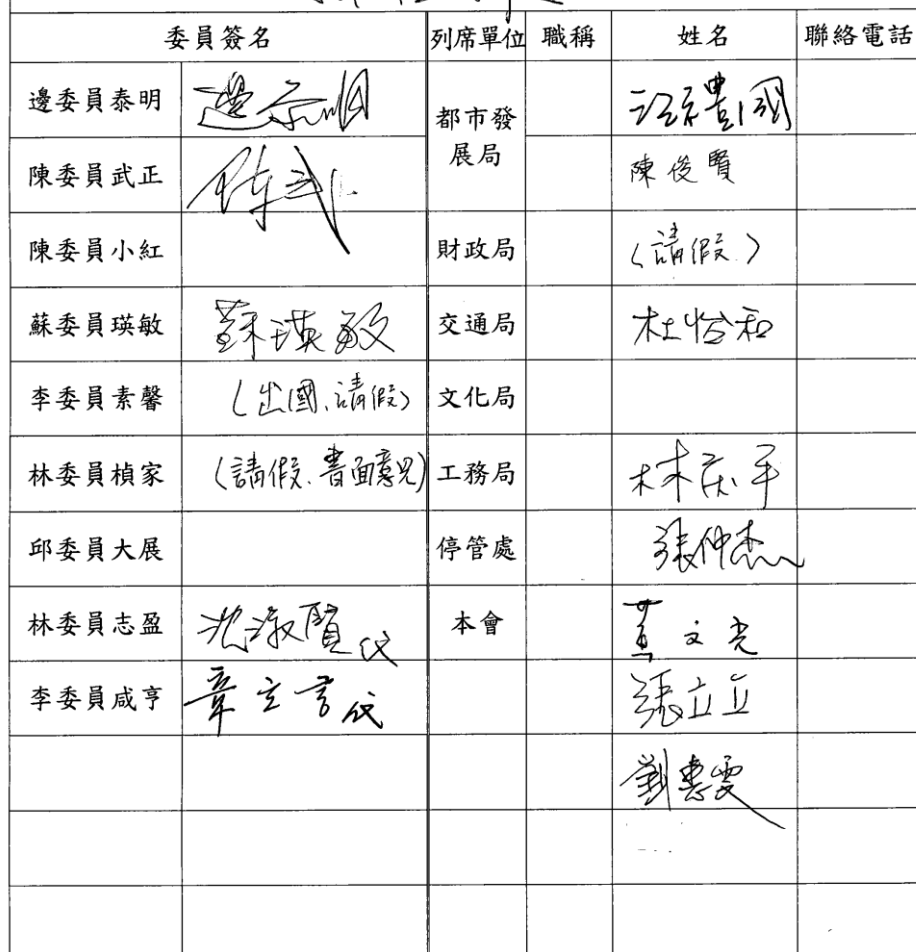 委員簽名 列席單位 職稱 姓名 聯絡電話
邊委員泰明 邊泰明 都市發展局
陳委員武正 陳武 陳俊賢
陳委員小紅 財政局 (請假)
蘇委員瑛敏 蘇瑛敏 交通局 杜怡和
李委員素馨 (出國、請假) 文化局
林委員楨家 (請假、書面意見) 工務局
邱委員大展 停管處 張仲杰
林委員志盈 沈淑賢代 本會
李委員咸亨 章立言代 張立立
劉惠雯